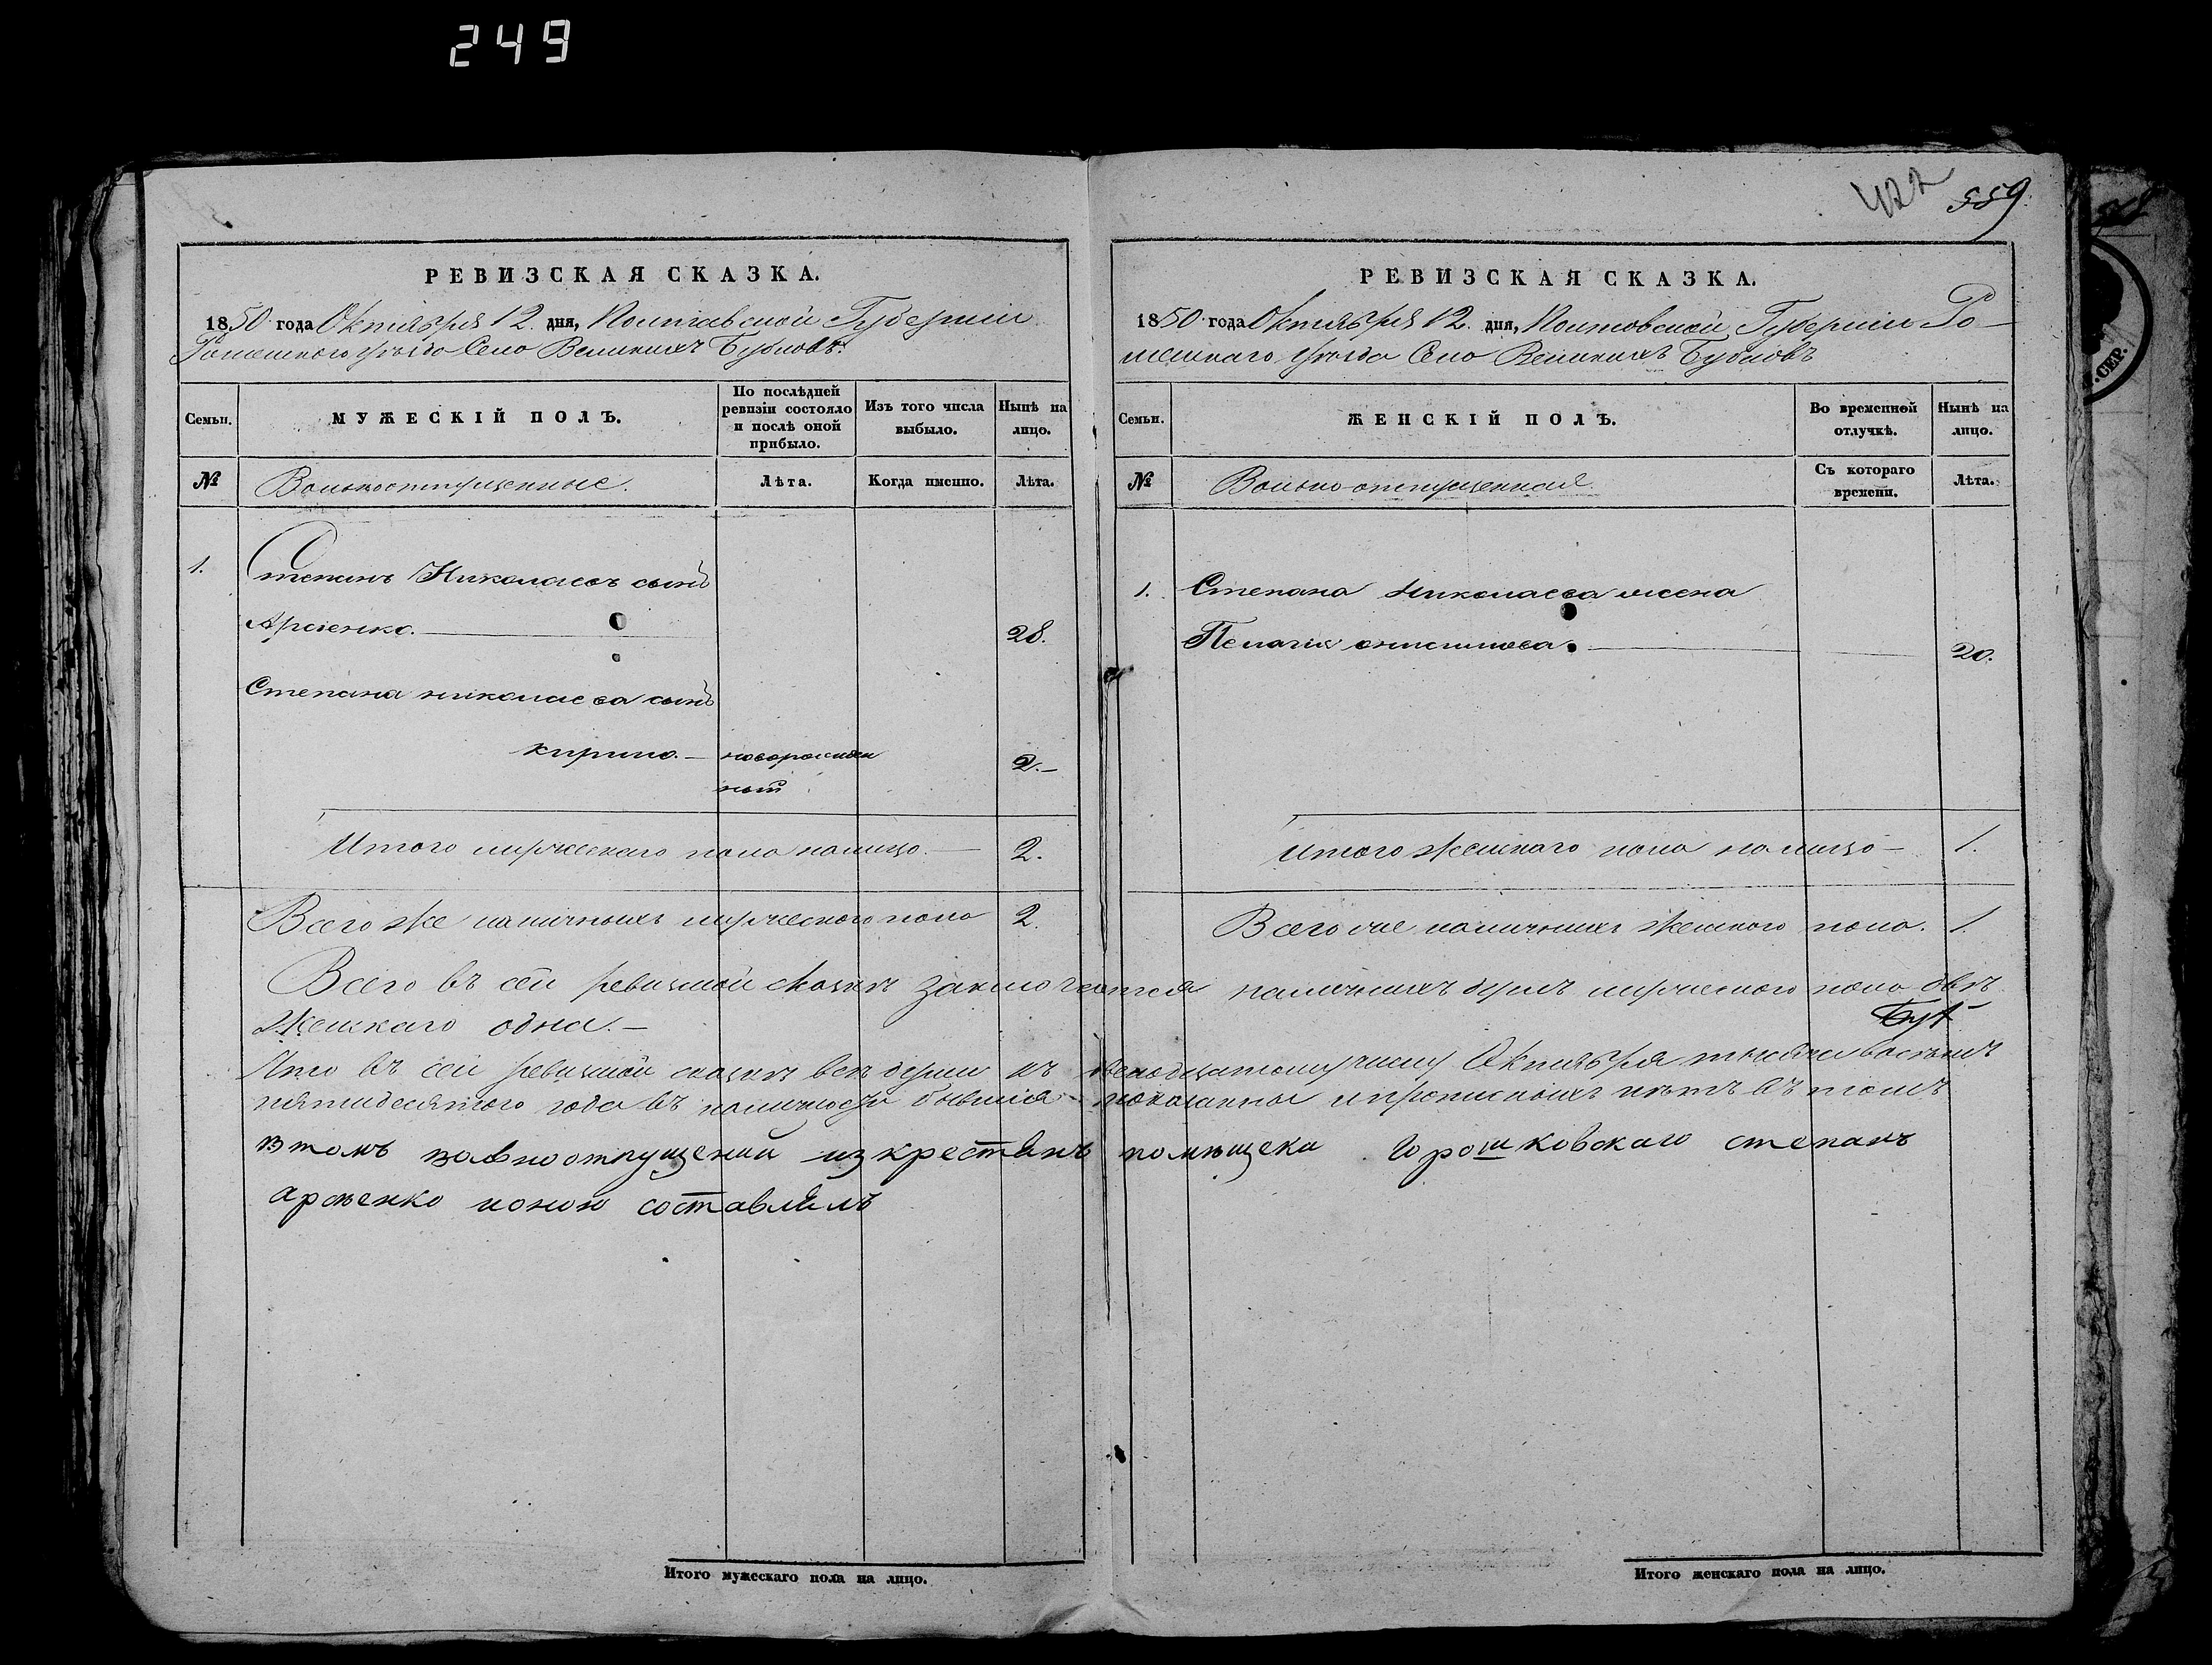 249
422 559
РЕВИЗСКАЯ СКАЗКА.
1850 года Октября 12 дня, Полтавской Губерніи
Роменского уѣзда Село Великихъ Бубновъ.
Семьи. МУЖЕСКІЙ ПОЛЪ. По послѣдней ревизіи состояло и послѣ оной прибыло. Изъ того числа выбыло. Нынѣ на лицо.
№ Вольноотпущенные. Лѣта. Когда именно. Лѣта.
1. Степанъ Николаевъ сынъ
Арсіенко. 28.
Степана николаева сынъ
кирило. — новорожден 2.—
ный
Итого мужескаго пола налицо. — 2.
Всего же наличныхъ мужеского пола 2.
РЕВИЗСКАЯ СКАЗКА.
1850 года Октября 12 дня, Полтовской Губерніи Ро-
менскаго уѣзда Село Великихъ Бубновъ
Семьи. ЖЕНСКІЙ ПОЛЪ. Во временной отлучкѣ. Нынѣ на лицо.
№ Вольно-отпущенная Съ котораго времени. Лѣта.
1. Степана Николаева жена
Пелагія онисимова. 20.
Итого женскаго пола налицо — 1.
Всего же наличныхъ женского пола. 1.
Всего въ сей ревизской сказкѣ заключается наличныхъ душъ мужеского пола двѣ
Женскаго одна. —
Что въ сей ревизской сказкѣ всѣ души къ двенодцатому числу Октября тысяча восемьсотъ
пятидесятого года въ наличности бывшія показанны и прописныхъ нѣтъ въ томъ
втомъ волноотпущений из крестянъ помѣщека Горошковскаго степанъ
арсіенко
составлялъ
Итого мужескаго пола на лицо.
Итого женскаго пола на лицо.